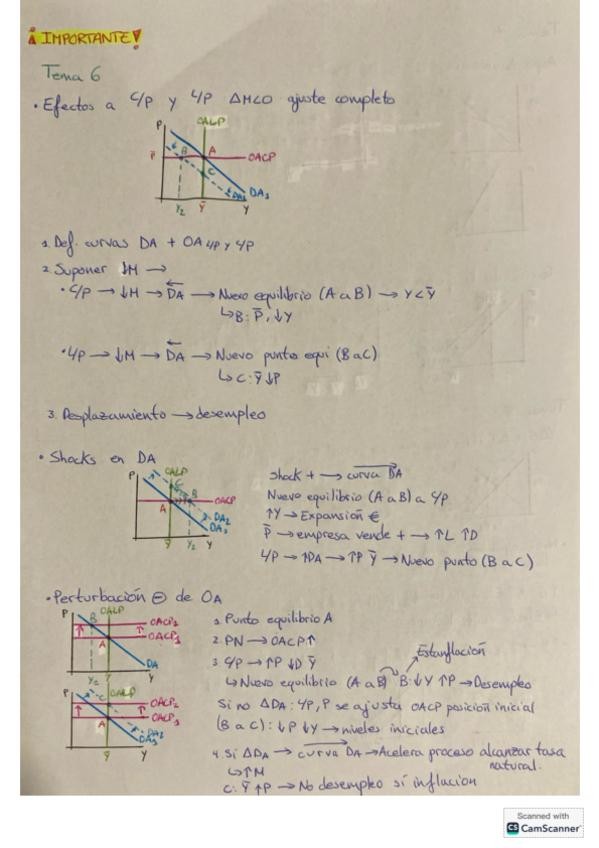 ¡IMPORTANTE!
Tema 6
• Efectos a C/P y L/P ΔMCO ajuste completo
P
OALP
P̄
B
A
OACP
C
DA2
DA1
Y2
Ȳ
Y
1. Def. curvas DA + OA C/P y L/P
2. Suponer ↓M →
• C/P → ↓M → DA → Nuevo equilibrio (A a B) → Y < Ȳ
↳ B: P̄, ↓Y
• L/P → ↓M → DA → Nuevo punto equi (B a C)
↳ C: Ȳ ↓P
3. Desplazamiento → desempleo
• Shocks en DA
P
OALP
C
B
A
OACP
DA2
DA1
Ȳ
Y2
Y
Shock + → curva DA
Nuevo equilibrio (A a B) a C/P
↑Y → Expansión €
P̄ → empresa vende + → ↑L ↑D
L/P → ↑DA → ↑P Ȳ → Nuevo punto (B a C)
• Perturbación ⊖ de OA
P
OALP
B
OACP2
OACP1
A
DA
Y2
Ȳ
Y
1. Punto equilibrio A
2. PN → OACP↑
Estanflación
3. C/P → ↑P ↓D Ȳ
↳ Nuevo equilibrio (A a B) B: ↓Y ↑P → Desempleo
Si no ΔDA: L/P, P se ajusta OACP posición inicial
(B a C): ↓P ↓Y → niveles iniciales
P
OALP
C
OACP2
OACP1
A
DA2
DA1
Ȳ
Y
4. Si ΔDA → curva DA → Acelera proceso alcanzar tasa
natural.
↳ ↑M
C: Ȳ ↑P → No desempleo sí inflación
Scanned with
CS CamScanner